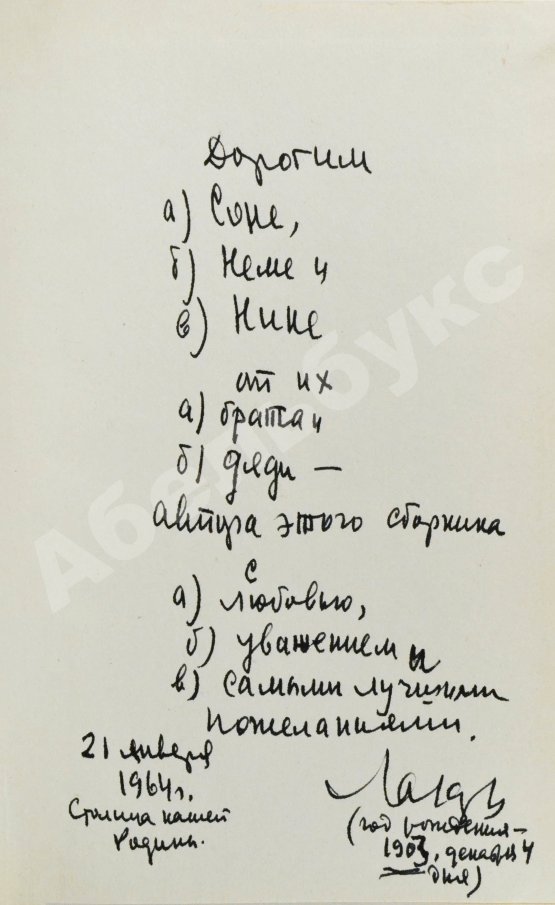 Дорогим
а) Соне,
б) Неме и
в) Нине
от их
а) брата и
б) дяди —
автора этого сборника
с
а) любовью,
б) уважением и
в) самыми лучшими
пожеланиями.
21 января
1964 г.
Столица нашей
Родины.
(год рождения —
1903, декабря 4
дня)
Абельбукс